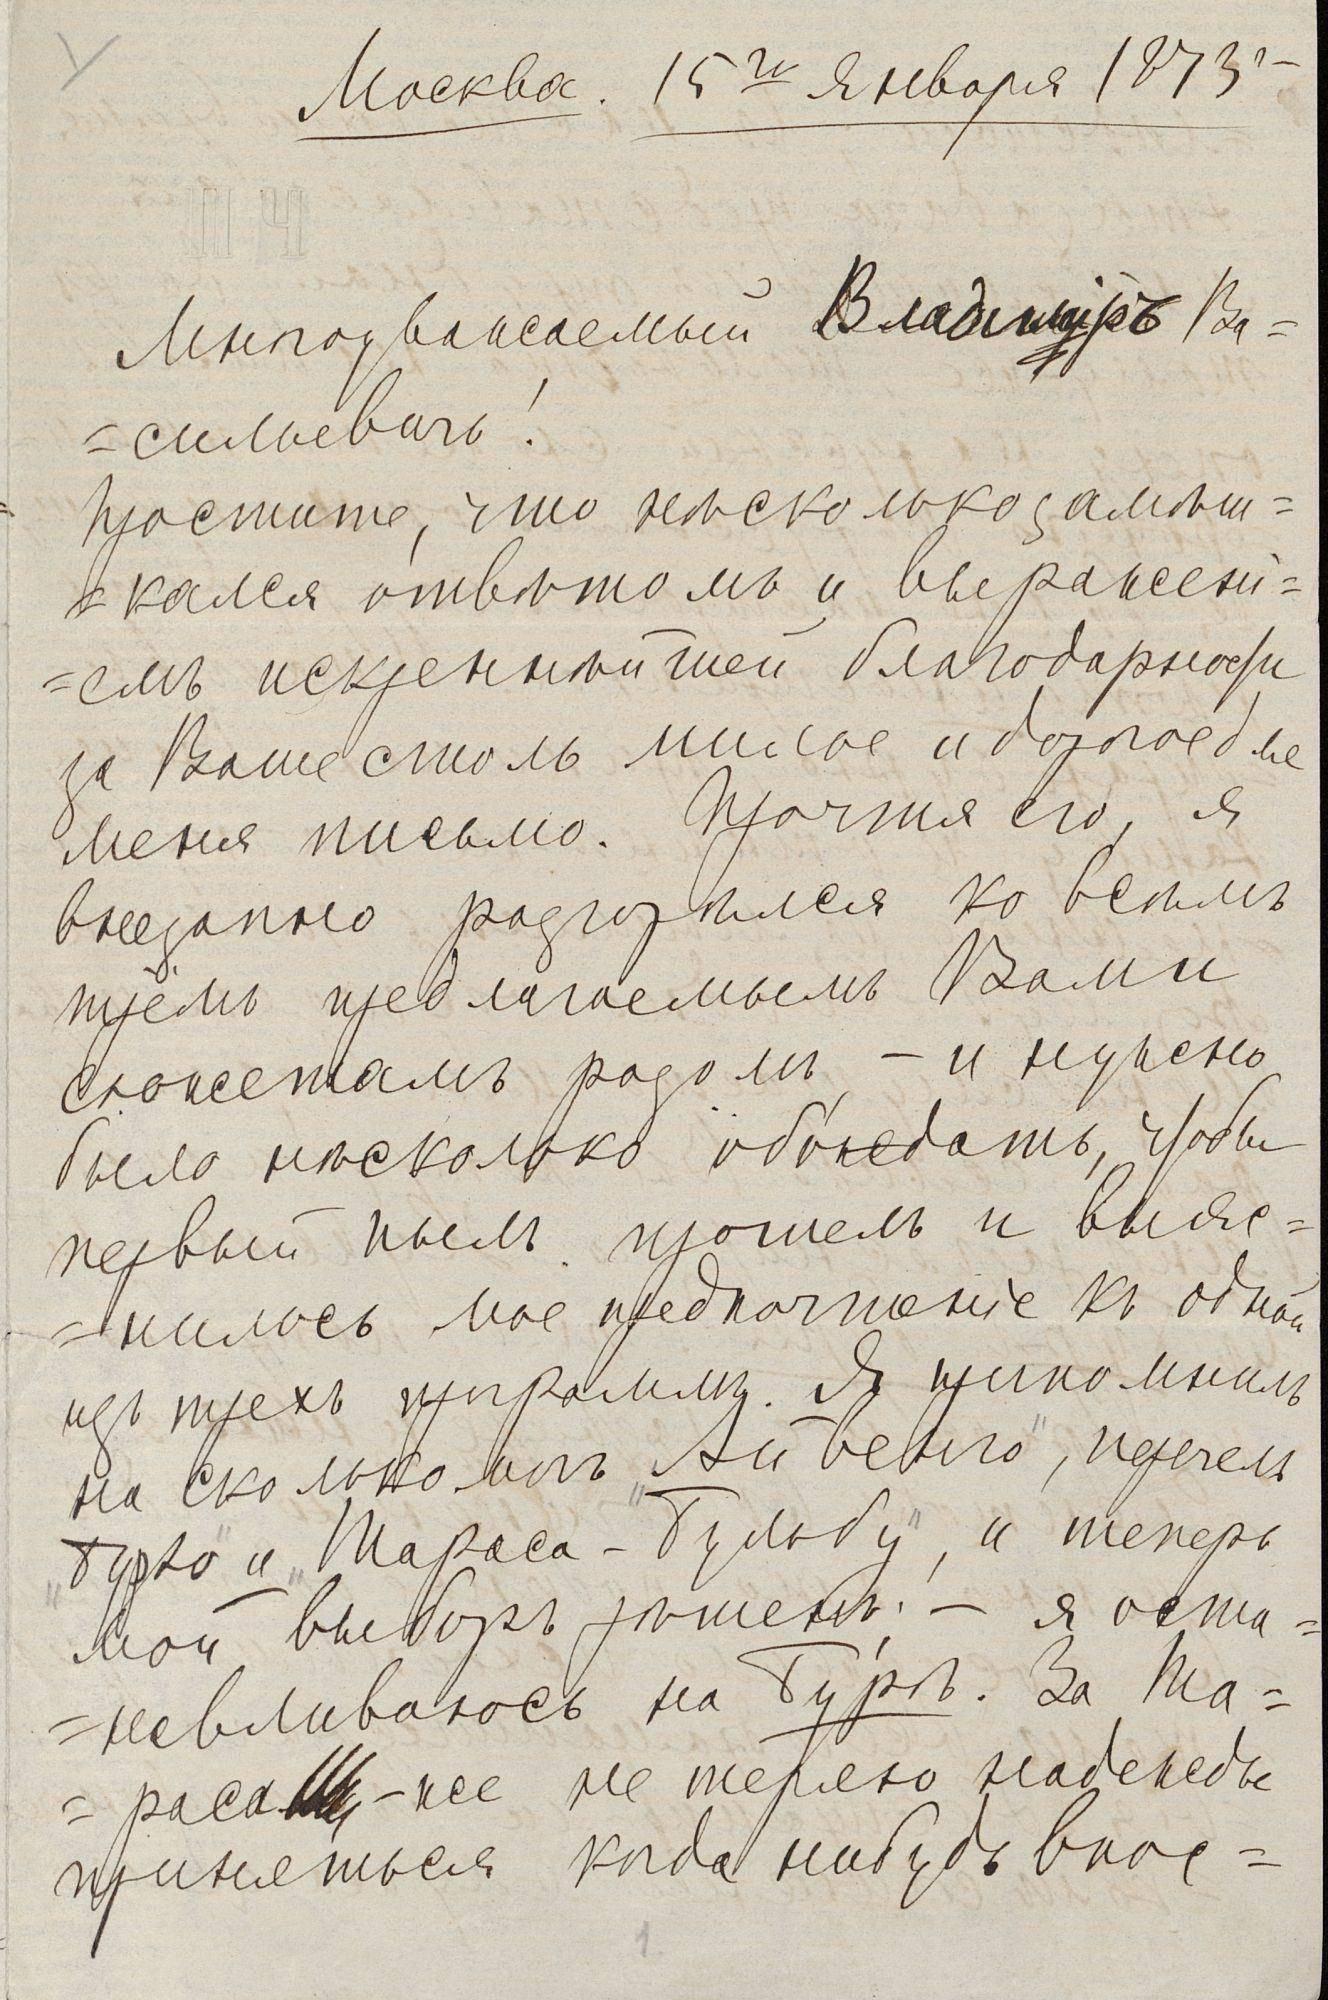 Москва. 15го Января 1873 г
Многоуважаемый Владимиръ Ва=
=сильевичъ!
Простите, что нѣсколько замѣш=
=кался отвѣтомъ и выраженi=
=емъ искреннѣйшей благодарности
за Ваше столь милое и дорогое для
меня письмо. Прочтя его, я
внезапно разгорѣлся ко всѣмъ
тремъ предлагаемымъ Вами
сюжетамъ разомъ, – и нужно
было нѣсколько обождать, чтобы
первый пылъ прошелъ и выяс=
=нилось мое предпочтенiе къ одной
изъ трехъ программъ. Я припомнилъ
на сколько могъ „Айвенго", перечелъ
„Бурю" и „Тараса-Бульбу", и теперь
мой выборъ рѣшенъ! – я оста=
=невливаюсь на Бурѣ. За Та=
=раса -же не теряю надежды
приняться когда нибудь впос=
1.